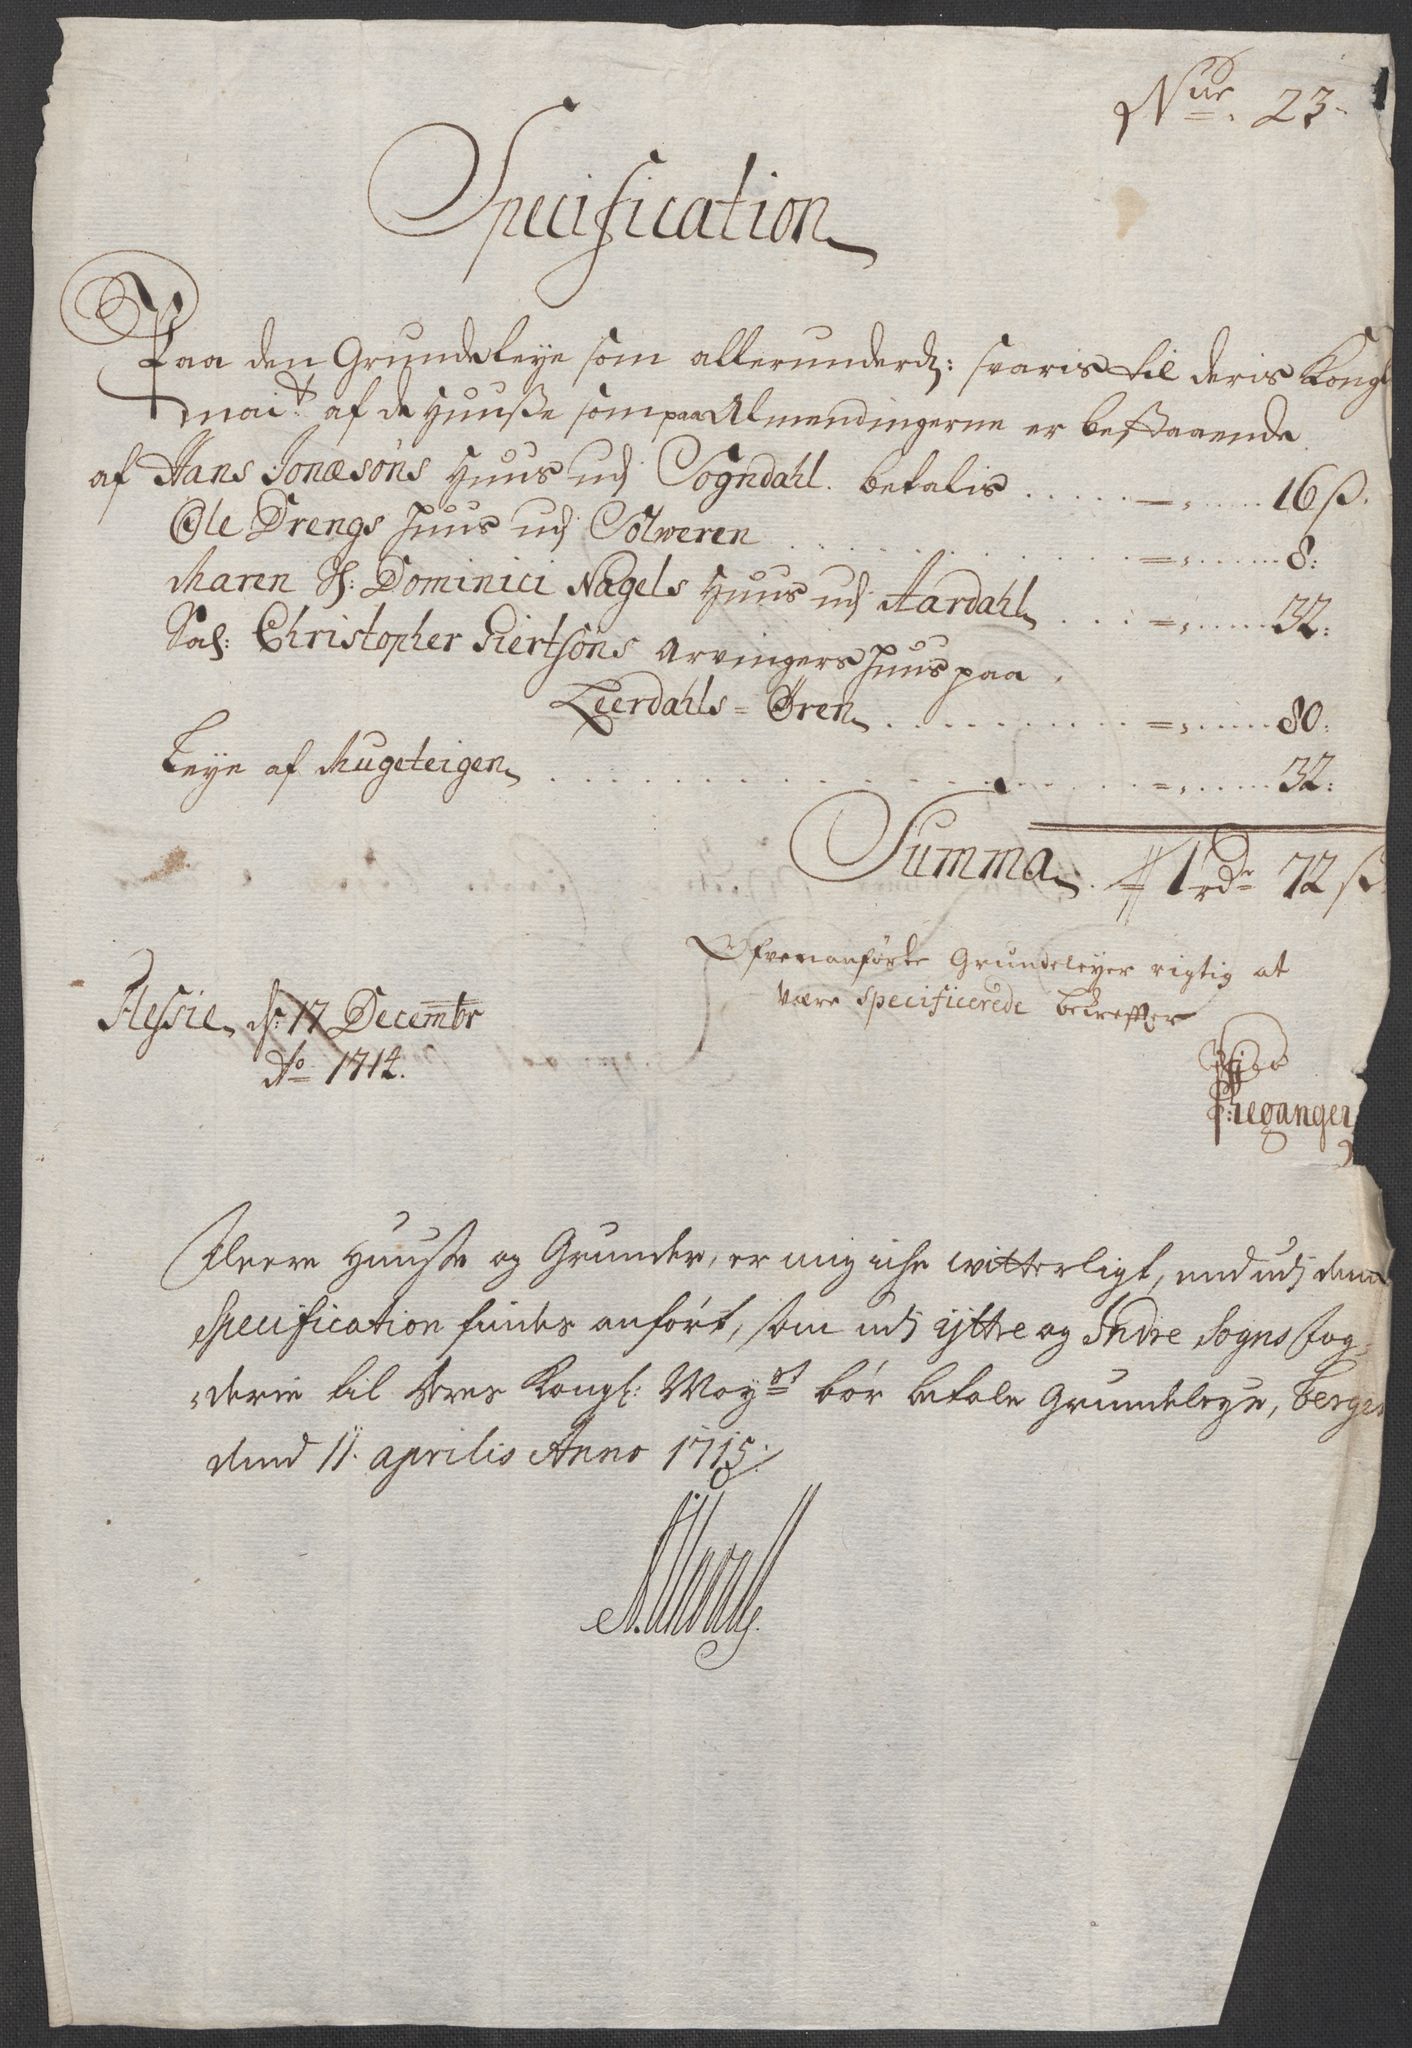 Nur. 23.
Specification
Paa den Grundeleye som allerunderd: svaris til deris Kongl
mai:t af de Huuse som paa Almendingerne er bestaaende
af Hans Jonæsøns Huus udj Sogndahl. betalis ..... = , ..... 16 ß.
Ole Drengs Huus udj Solweren ..... = , ..... 8:
Maren Sl: Dominici Nagels Huus udj Aardahl ..... = , ..... 32:
Sal: Christopher Giertsøns Arvingers Huus paa
Leerdahls = Øren ..... = , ..... 80:
Leye af Mugeteigen ..... = , ..... 32:
Summa 1 rdr 72 ß
Ofvenanførte Grundeleyer rigtig at
være specificerede bekreffter
d: 17 Decembr
Ao 1714.
Fleere Huuse og Grunder, er mig iche witterligt, end udj denne
Specification findes anført, som udj yttre og Indre Sogns Fog-
derie til Deres Kongl: Mayst bør betale Grundeleye, Bergen
dend 11. aprilis Anno 1715.